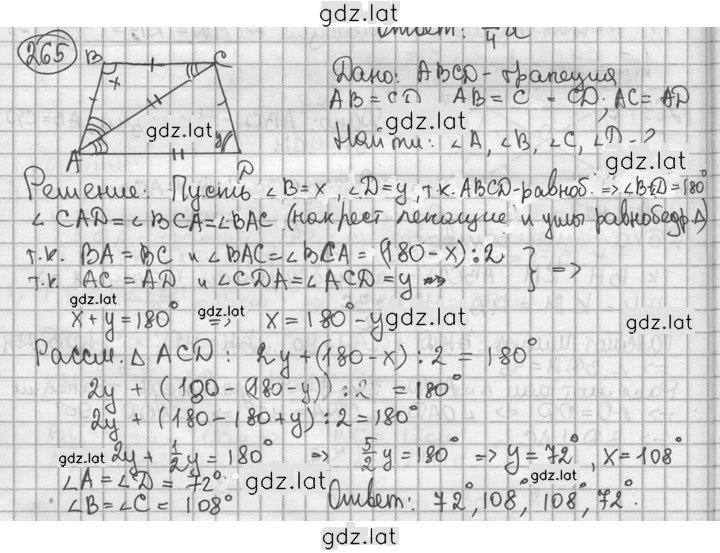 gdz.lat
265
Ответ: /4 d
B C
x
y
A D
gdz.lat
Дано: ABCD - трапеция
AB = CD AB = C = CD; AC = AD
gdz.lat
Найти: ∠A, ∠B, ∠C, ∠D - ?
gdz.lat
Решение: Пусть ∠B = x, ∠D = y, т.к. ABCD - равноб. => ∠B+∠D = 180°
∠CAD = ∠BCA = ∠BAC (накрест лежащие и углы равнобедр. Δ)
т.к. BA = BC и ∠BAC = ∠BCA = (180 - x) : 2 } =>
т.к. AC = AD и ∠CDA = ∠ACD = y =>
gdz.lat gdz.lat gdz.lat gdz.lat
x + y = 180° => x = 180° - y
Рассм. Δ ACD: 2y + (180 - x) : 2 = 180°
2y + (180 - (180 - y)) : 2 = 180°
2y + (180 - 180 + y) : 2 = 180°
gdz.lat 2y + 1/2 y = 180° => 5/2 y = 180° => y = 72°, x = 108°
∠A = ∠D = 72° gdz.lat gdz.lat
∠B = ∠C = 108° Ответ: 72°, 108°, 108°, 72°.
gdz.lat